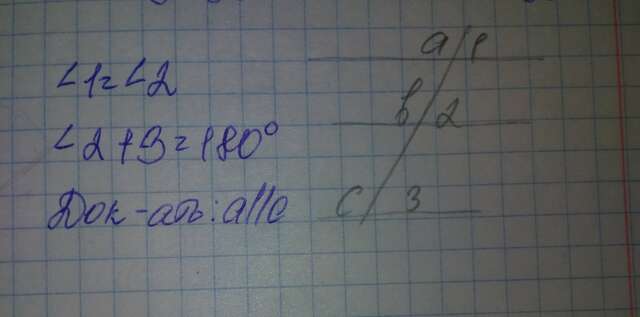 ∠1=∠2
∠2+3=180°
Док-ать: a||c
a 1
b 2
c 3